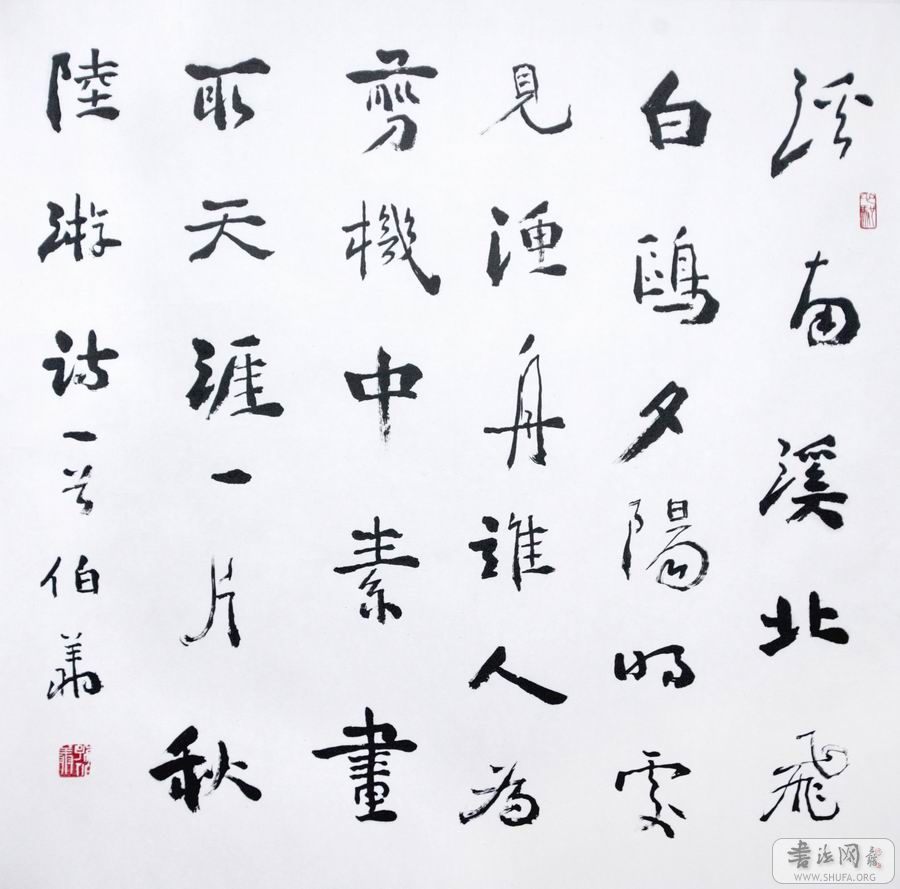 溪南溪北飛
白鷗夕陽明處
見漁舟誰人為
剪機中素畫
取天涯一片秋
陸游詩一首伯
書法网
WWW.SHUFA.ORG